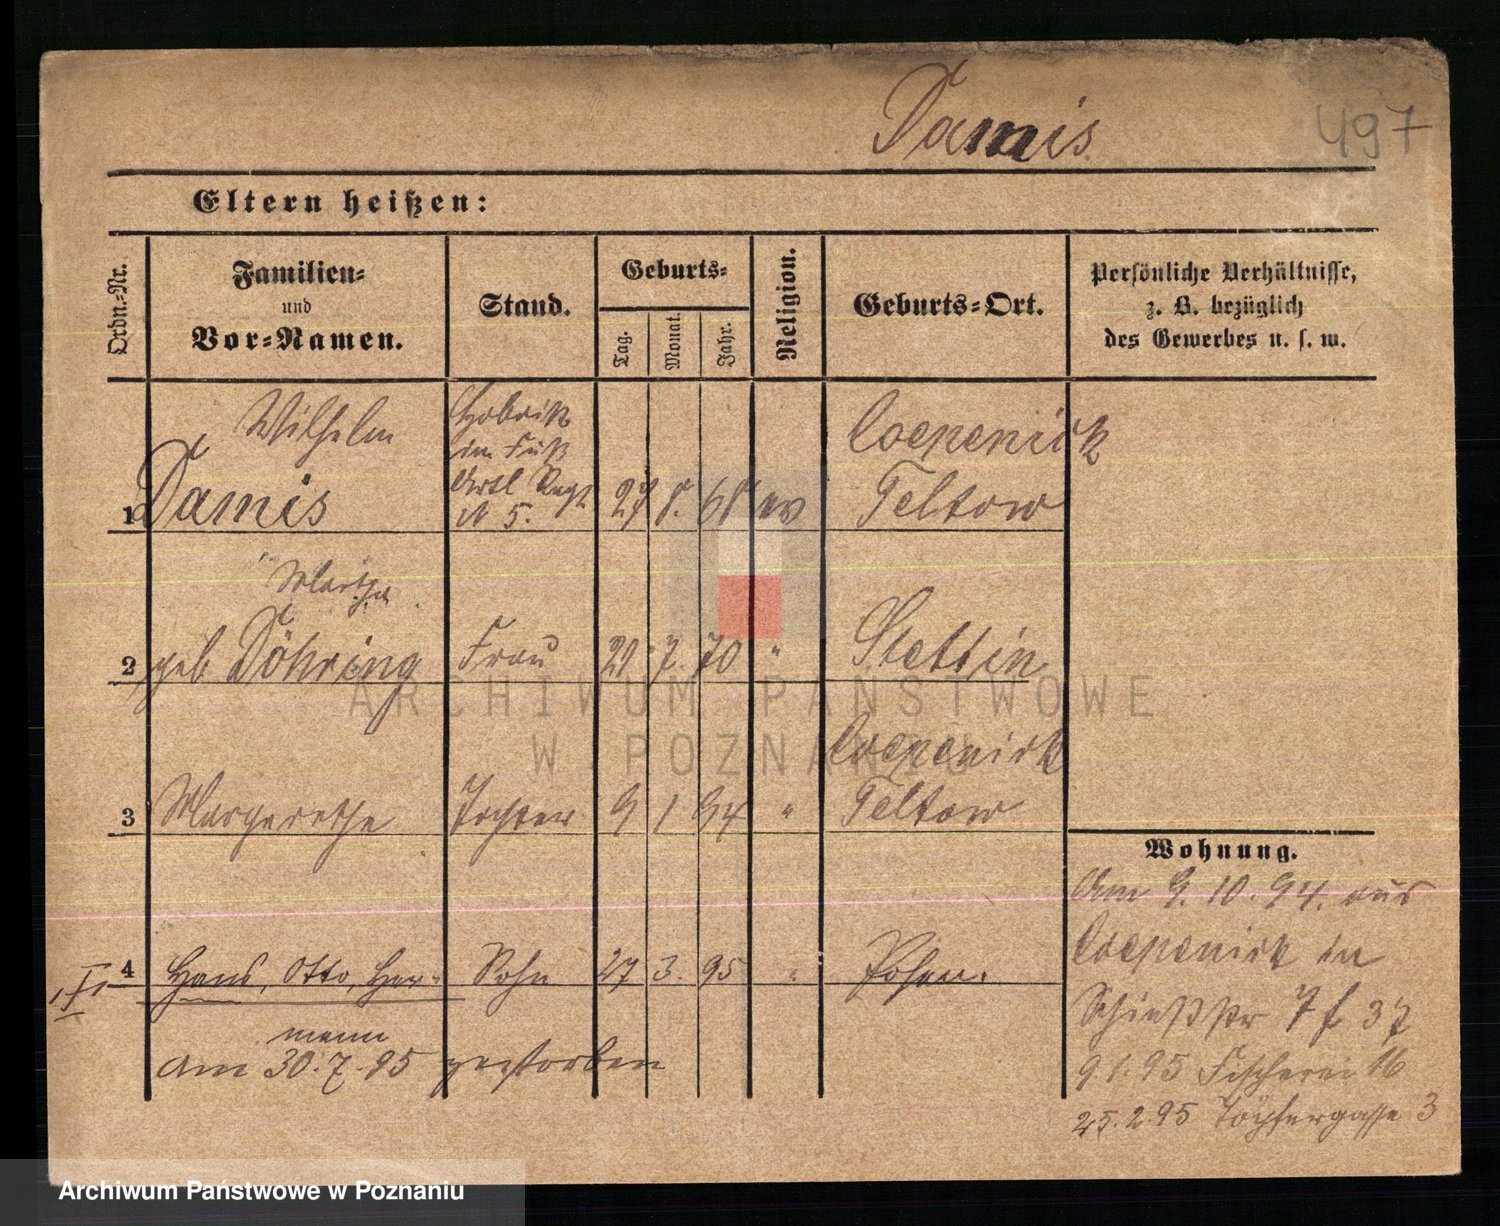 Damis
497
Eltern heißen:
Ordn.-Nr.
Familien-
und
Vor-Namen.
Stand.
Geburts-
Tag.
Monat.
Jahr.
Religion.
Geburts-Ort.
Persönliche Verhältnisse,
z. B. bezüglich
des Gewerbes u. s. w.
Wilhelm
Damis
im Fuß
Artl Regt
N 5.
1
27 8. 68 ev
Coepenick
Teltow
Martha
2 geb Döhring Frau 20 7. 70 " Stettin
3 Margarethe Tochter 9 1 94 "
Coepenick
Teltow
4 Hans, Otto, Her-
mann
Sohn 27 3. 95 " Posen.
am 30.7.95 gestorben
Wohnung.
Am 9.10.94. aus
Coepenick in
Schießstr 7 f 37
9 1. 95 Fischerei 16
25.2.95 Töpfergasse 3
ARCHIWUM PAŃSTWOWE
W POZNANIU
Archiwum Państwowe w Poznaniu